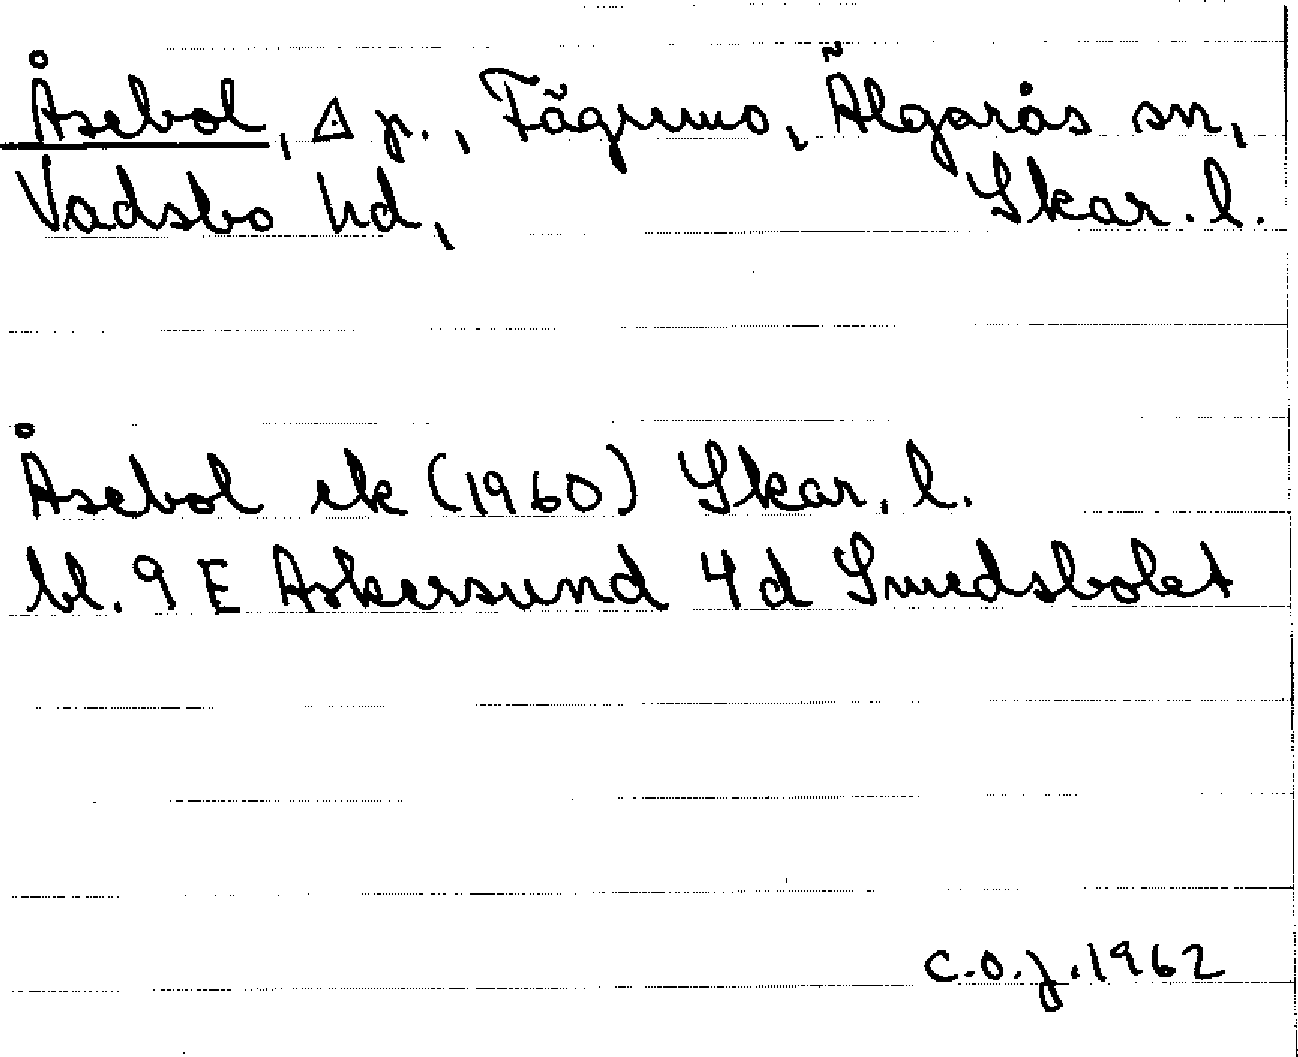 Åsebol, △ p., Tägremo, Älgarås sn,
Vadsbo hd, Skar. l.
Åsebol ek (1960) Skar. l.
bl. 9 E Askersund 4d Smedsbolet
C.O.J. 1962